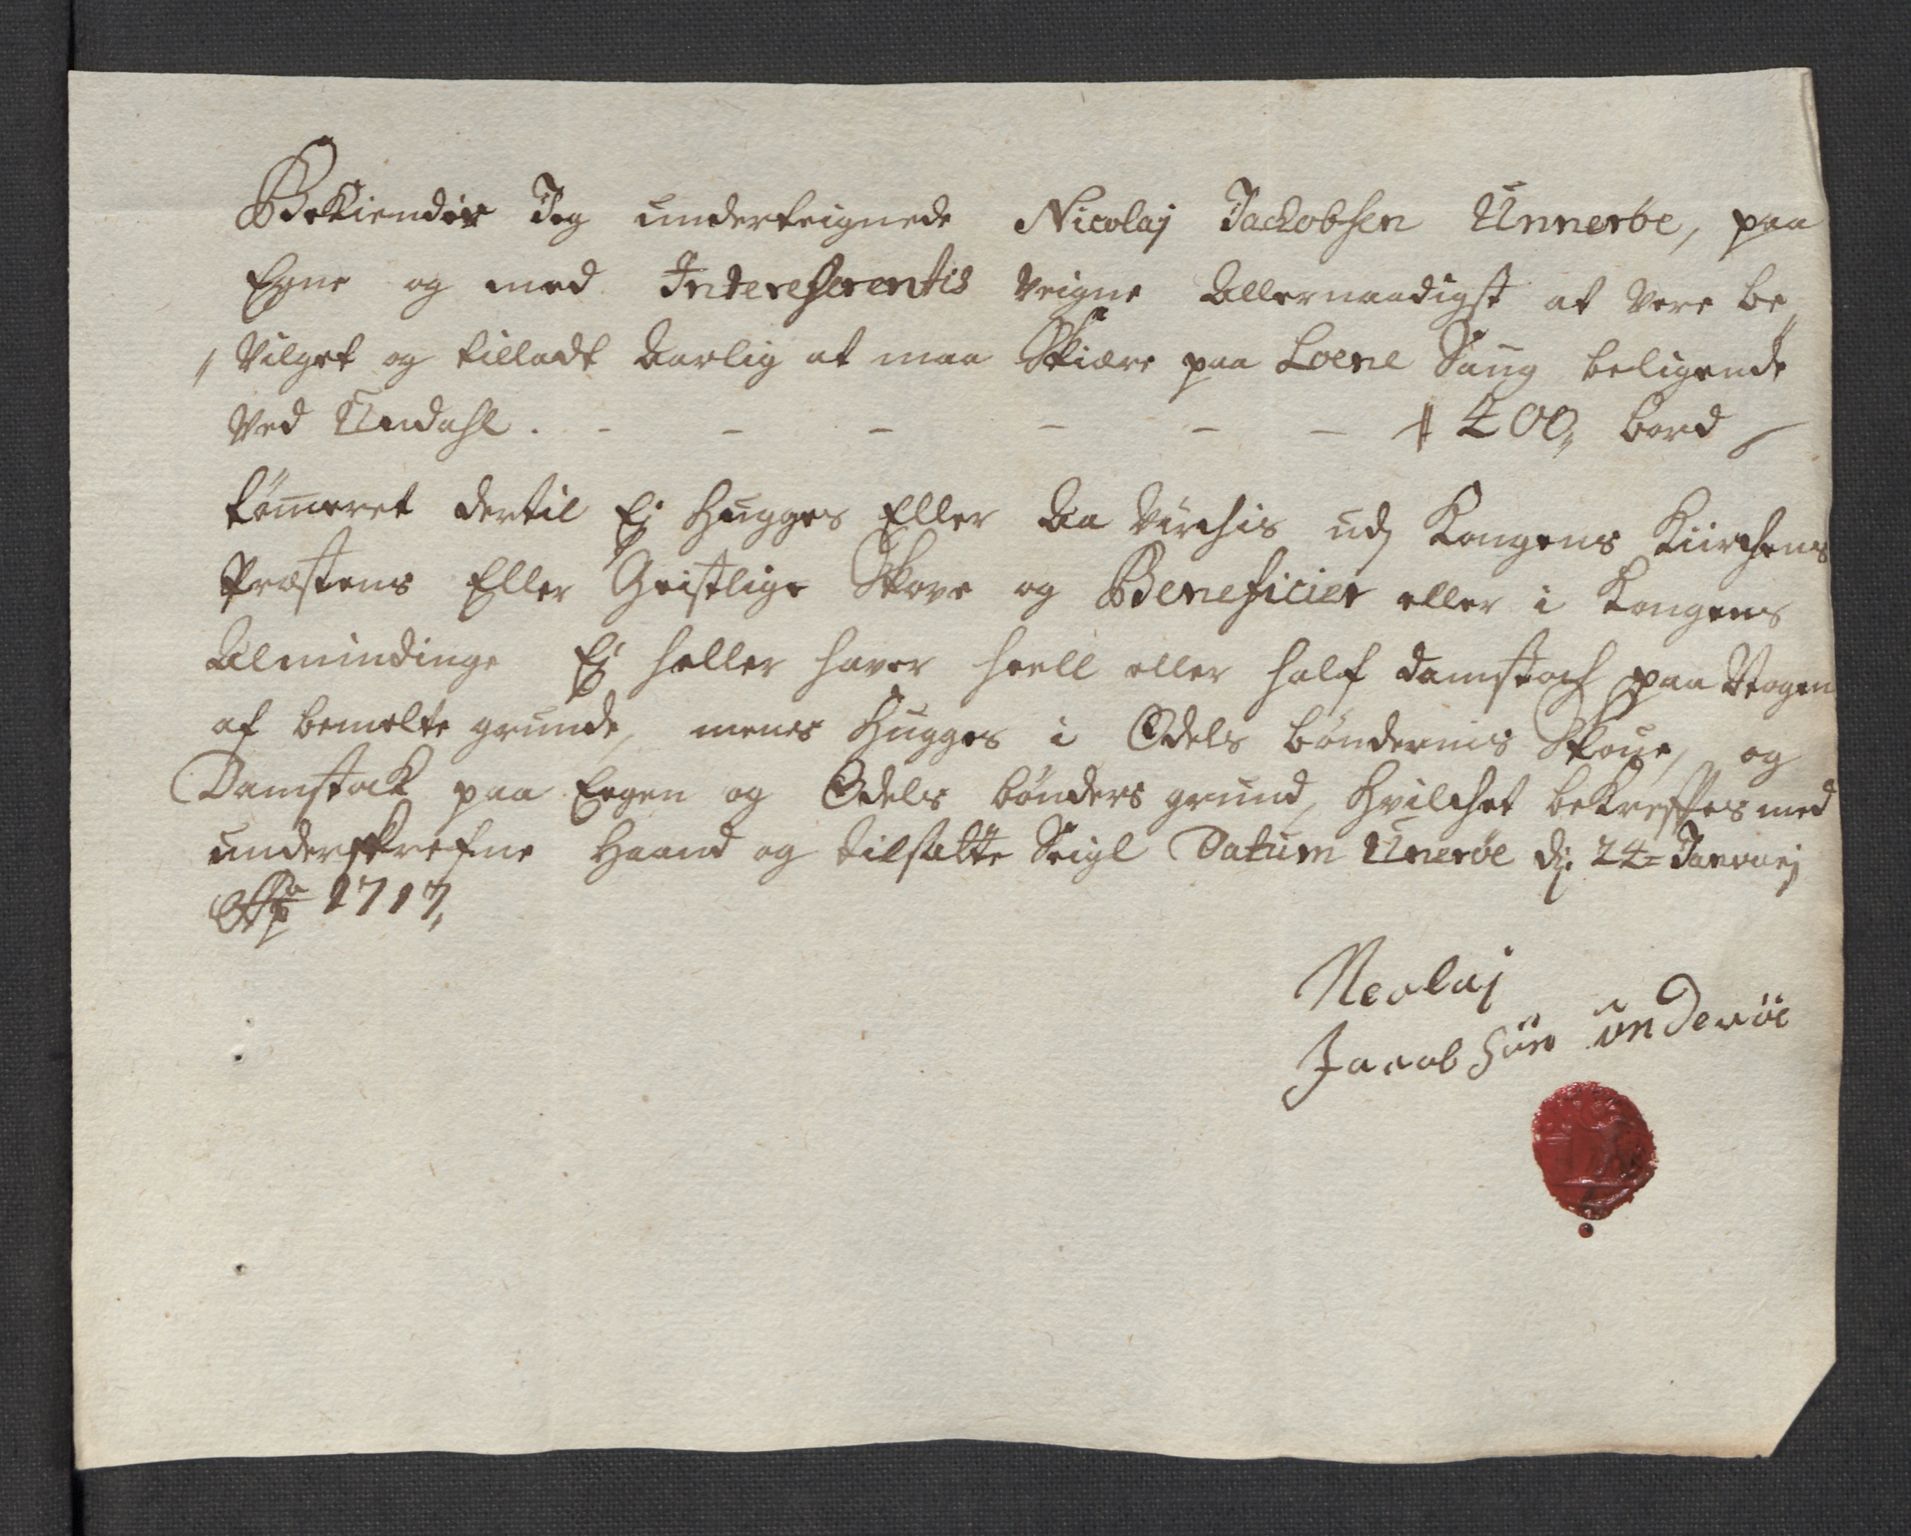 Bekiender Jeg underteignede Nicolaj Jackobsen Unneröe, paa
Egne og med Interesserentis Veigne Allernaadigst at Vere be
Vilget og tilladt Aarlig at maa Skiære paa Loene Saug beligende
Ved Undahl. - - - - - - # 400, bord
tömeret dertil Ej Hugges Eller Aa Virchis udj Kongens Kiirchens
Præstens Eller Geistlige Skove og Beneficier eller i Kongens
Almindinge Ej heller haver heell eller half damstoch paa Nogen
af bemelte grunde, mens Hugges i Odels böndernis Skoue, og
Damstok paa Eegen og Odels bönders grund, Hvilchet bekreftes med
underskrefne Haand og tilsatte Seigl Datum Uneröe dj 24= Janvarj
Ao 1717,
Neolaj
Jacob Sön underöe